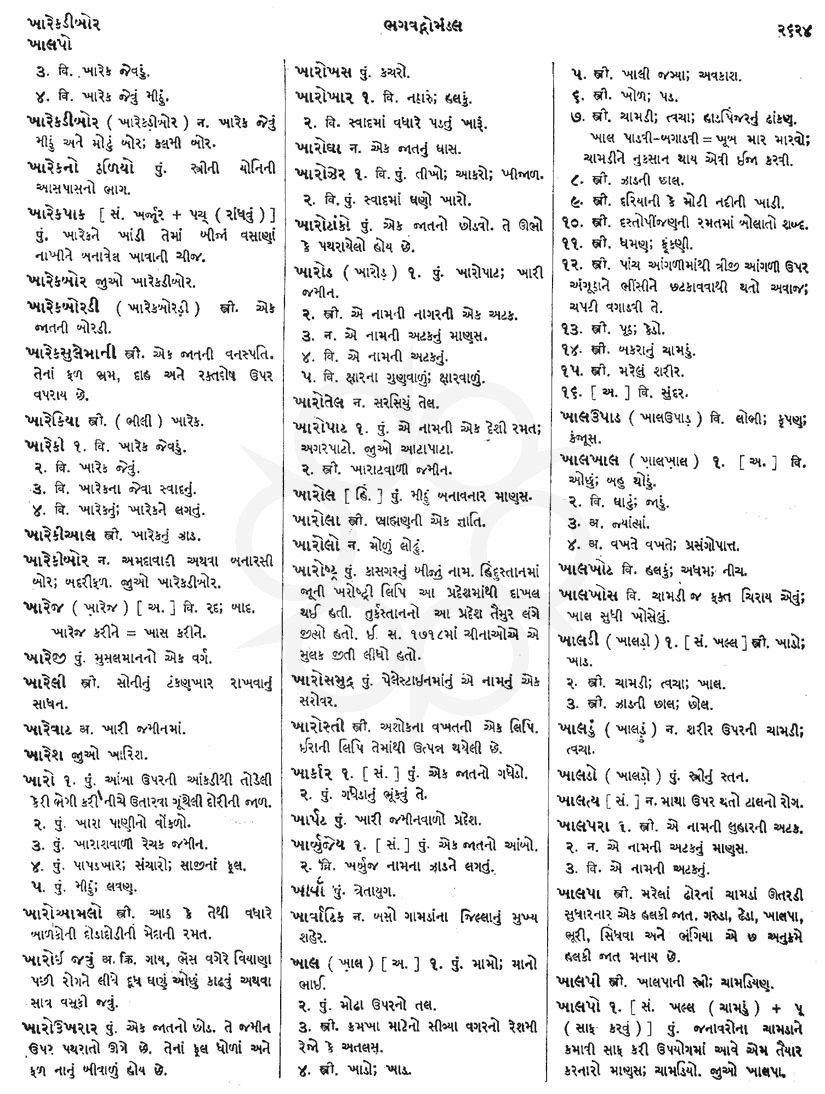 ખારેકડીબોર
ખાલપો
ભગવદ્ગોમંડલ
૨૬૨૪
૩. વિ. ખારેક જેવડું.
૪. વિ. ખારેક જેવું મીઠું.
ખારેકડીબોર ( ખારેકડ઼ીબોર ) ન. ખારેક જેવું
મીઠું અને મોટું બોર; કલમી બોર.
ખારેકનો ઠળિયો પું. સ્ત્રીની યોનિની
આસપાસનો ભાગ.
ખારેકપાક [ સં. ખર્જૂર + પચ્ ( રાંધવું ) ]
પું. ખારેકને ખાંડી તેમાં બીજાં વસાણાં
નાખીને બનાવેલ ખાવાની ચીજ.
ખારેકબોર જુઓ ખારેકડીબોર.
ખારેકબોરડી ( ખારેકબોરડ઼ી ) સ્ત્રી. એક
જાતની બોરડી.
ખારેકસુલેમાની સ્ત્રી. એક જાતની વનસ્પતિ.
તેનાં ફળ ભ્રમ, દાહ અને રક્તદોષ ઉપર
વપરાય છે.
ખારેકિયા સ્ત્રી. ( ભીલી ) ખારેક.
ખારેકો ૧. વિ. ખારેક જેવડું.
૨. વિ. ખારેક જેવું.
૩. વિ. ખારેકના જેવા સ્વાદનું.
૪. વિ. ખારેકનું; ખારેકને લગતું.
ખારેકીઆલ સ્ત્રી. ખારેકનું ઝાડ.
ખારેકીબોર ન. અમદાવાદી અથવા બનારસી
બોર; બદરીફળ. જુઓ ખારેકડીબોર.
ખારેજ ( ખ઼ારેજ ) [ અ. ] વિ. રદ; બાદ.
ખારેજ કરીને = ખાસ કરીને.
ખારેજી પું. મુસલમાનનો એક વર્ગ.
ખારેલી સ્ત્રી. સોનીનું ટંકણખાર રાખવાનું
સાધન.
ખારેવાટ અ. ખારી જમીનમાં.
ખારેશ જુઓ ખારિશ.
ખારો ૧. પું. આંબા ઉપરની આંકડીથી તોડેલી
કેરી ભેગી કરી નીચે ઉતારવા ગૂંથેલી દોરીની જાળ.
૨. પું. ખારા પાણીનો વોંકળો.
૩. પું. ખારાશવાળી રેચક જમીન.
૪. પું. પાપડખાર; સંચારો; સાજીનાં ફૂલ.
૫. પું. મીઠું; લવણ.
ખારોઆમલો સ્ત્રી. આઠ કે તેથી વધારે
બાળકોની દોડાદોડીની મેદાની રમત.
ખારોઈ જવું અ. ક્રિ. ગાય, ભેંસ વગેરે વિયાણા
પછી રોગને લીધે દૂધ ઘણું ઓછું કાઢવું અથવા
સાવ વસૂકી જવું.
ખારોઉખરાર પું. એક જાતનો છોડ. તે જમીન
ઉપર પથરાતો ઊગે છે. તેનાં ફૂલ ધોળાં અને
ફળ નાનું બીવાળું હોય છે.
ખારોખસ પું. કચરો.
ખારોખાર ૧. વિ. નઠારું; હલકું.
૨. વિ. સ્વાદમાં વધારે પડતું ખારૂં.
ખારોઘા ન. એક જાતનું ઘાસ.
ખારોઝેર ૧. વિ. પું. તીખો; આકરો; ખીજાળ.
૨. વિ. પું. સ્વાદમાં ઘણો ખારો.
ખારોટાંકો પું. એક જાતનો છોડવો. તે ઊભો
કે પથરાયેલો હોય છે.
ખારોડ ( ખારોડ઼ ) ૧. પું. ખારોપાટ; ખારી
જમીન.
૨. સ્ત્રી. એ નામની નાગરની એક અટક.
૩. ન. એ નામની અટકનું માણસ.
૪. વિ. એ નામની અટકનું.
૫. વિ. ક્ષારના ગુણવાળું; ક્ષારવાળું.
ખારોતેલ ન. સરસિયું તેલ.
ખારોપાટ ૧. પું. એ નામની એક દેશી રમત;
અગરપાટો. જુઓ આટાપાટા.
૨. સ્ત્રી. ખારાટવાળી જમીન.
ખારોલ [ હિં. ] પું. મીઠું બનાવનાર માણસ.
ખારોલા સ્ત્રી. બ્રાહ્મણની એક જ્ઞાતિ.
ખારોલો ન. મોળું લોઢું.
ખારોષ્ટ્ર પું. કાસગરનું બીજું નામ. હિંદુસ્તાનમાં
જૂની ખરોષ્ટ્રી લિપિ આ પ્રદેશમાંથી દાખલ
થઈ હતી. તુર્કસ્તાનનો આ પ્રદેશ તૈમુર લંગે
જીત્યો હતો. ઈ. સ. ૧૭૧૮માં ચીનાઓએ એ
મુલક જીતી લીધો હતો.
ખારોસમુદ્ર પું. પેલેસ્ટાઇનમાંનું એ નામનું એક
સરોવર.
ખારોસ્તી સ્ત્રી. અશોકના વખતની એક લિપિ.
ઈરાની લિપિ તેમાંથી ઉત્પન્ન થયેલી છે.
ખાર્કાર ૧. [ સં. ] પું. એક જાતનો ગધેડો.
૨. પું. ગધેડાનું ભૂંકવું તે.
ખાર્પટ પું. ખારી જમીનવાળો પ્રદેશ.
ખાર્બુજેય ૧. [ સં. ] પું. એક જાતનો આંબો.
૨. વિ. ખર્બુજ નામના ઝાડને લગતું.
ખાર્વા પું. ત્રેતાયુગ.
ખાર્વાટિક ન. બસો ગામડાંના જિલ્લાનું મુખ્ય
શહેર.
ખાલ ( ખ઼ાલ ) [ અ. ] ૧. પું. મામો; માનો
ભાઈ.
૨. પું. મોઢા ઉપરનો તલ.
૩. સ્ત્રી. કમખા માટેનો સીવ્યા વગરનો રેશમી
રેજો કે અતલસ.
૪. સ્ત્રી. ખાડો; ખાડ.
૫. સ્ત્રી. ખાલી જગ્યા; અવકાશ.
૬. સ્ત્રી. ખોળ; પડ.
૭. સ્ત્રી. ચામડી; ત્વચા; હાડપિંજરનું ઢાંકણ.
ખાલ પાડવી-બગાડવી = ખૂબ માર મારવો;
ચામડીને નુકસાન થાય એવી ઈજા કરવી.
૮. સ્ત્રી. ઝાડની છાલ.
૯. સ્ત્રી. દરિયાની કે મોટી નદીની ખાડી.
૧૦. સ્ત્રી. દસ્તોપીંજણુની રમતમાં બોલાતો શબ્દ.
૧૧. સ્ત્રી. ધમણ; ફૂંકણી.
૧૨. સ્ત્રી. પાંચ આંગળીમાંથી ત્રીજી આંગળી ઉપર
અંગૂઠાને ભીંસીને છટકાવવાથી થતો અવાજ;
ચપટી વગાડવી તે.
૧૩. સ્ત્રી. પૂઠ; કેડો.
૧૪. સ્ત્રી. બકરાનું ચામડું.
૧૫. સ્ત્રી. મરેલું શરીર.
૧૬. [ અ. ] વિ. સુંદર.
ખાલઉપાડ ( ખાલઉપાડ઼ ) વિ. લોભી; કૃપણ;
કંજૂસ.
ખાલખાલ ( ખ઼ાલખ઼ાલ ) ૧. [ અ. ] વિ.
ઓછું; બહુ થોડું.
૨. વિ. ઘાટું; જાડું.
૩. અ. જ્યાંત્યાં.
૪. અ. વખતે વખતે; પ્રસંગોપાત્ત.
ખાલખોટ વિ. હલકું; અધમ; નીચ.
ખાલખોસ વિ. ચામડી જ ફક્ત ચિરાય એવું;
ખાલ સુધી ખોસેલું.
ખાલડી ( ખાલડ઼ી ) ૧. [ સં. ખલ્લ ] સ્ત્રી. ખાડો;
ખાડ.
૨. સ્ત્રી. ચામડી; ત્વચા; ખાલ.
૩. સ્ત્રી. ઝાડની છાલ; છોલ.
ખાલડું ( ખાલડ઼ું ) ન. શરીર ઉપરની ચામડી;
ત્વચા.
ખાલડો ( ખાલડ઼ો ) પું. સ્ત્રીનું સ્તન.
ખાલત્ય [ સં. ] ન. માથા ઉપર થતો ટાલનો રોગ.
ખાલપરા ૧. સ્ત્રી. એ નામની લુહારની અટક.
૨. ન. એ નામની અટકનું માણસ.
૩. વિ. એ નામની અટકનું.
ખાલપા સ્ત્રી. મરેલાં ઢોરનાં ચામડાં ઊતરડી
સુધારનાર એક હલકી જાત. ગરુડા, ઢેડા, ખાલપા,
ભૂરી, સિંધવા અને ભંગિયા એ છ અનુક્રમે
હલકી જાત મનાય છે.
ખાલપી સ્ત્રી. ખાલપાની સ્ત્રી; ચામડિયણ.
ખાલપો ૧. [ સં. ખલ્લ ( ચામડું ) + પૂ
( સાફ કરવું ) ] પું. જનાવરોના ચામડાને
કમાવી સાફ કરી ઉપયોગમાં આવે એમ તૈયાર
કરનારો માણસ; ચામડિયો. જુઓ ખાલપા.